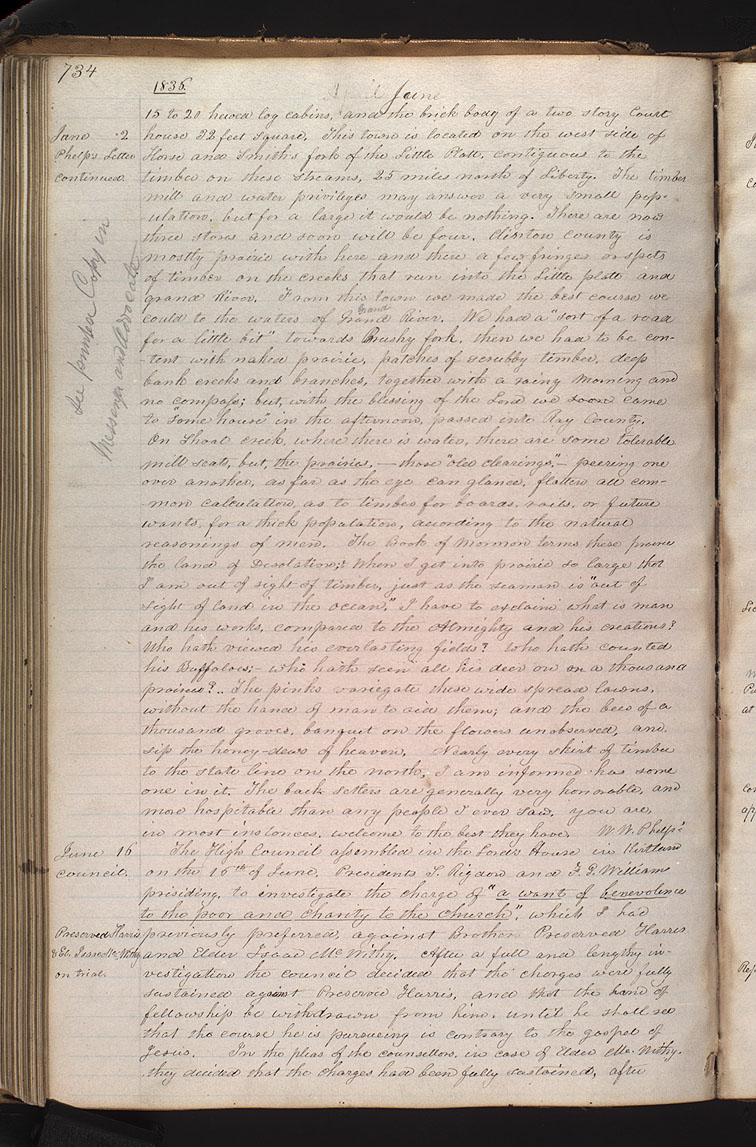 734
1836.
April June
15 to 20 hewed log cabins, and the brick body of a two story Court
June 2
house 22 feet square. This town is located on the west side of
Phelps Letter
Horse and Smiths fork of the Little Platt, contiguous to the
continued.
timber on these streams, 25 miles north of Liberty. The timber
mill and water privileges may answer a very small pop-
ulation, but for a large it would be nothing. There are now
three stores and soon will be four. Clinton County is
mostly prairie with here and there a few fringes or spots
of timber on the creeks that run into the Little platt and
grand River. From this town we made the best course we
See printed Copy in
Messenger and Advocate
Grand
could to the waters of Grand River. We had a "sort of a road
for a little bit" towards Brushy fork, then we had to be con-
-tent with naked prairie, patches of scrubby timber, deep
bank creeks and branches, together with a rainy morning and
no compass; but, with the blessing of the Lord we soon came
to "some house" in the afternoon, passed into Ray County.
On Shoal creek, where there is water, there are some tolerable
mill seats, but, the prairies,—those "old clearings",—peering one
over another, as far as the eye can glance, flatten all com-
mon calculation, as to timber for boards, rails, or future
wants, for a thick population, according to the natural
reasonings of men. The Book of Mormon terms these prairie
the land of Desolation; When I get into prairie so large that
I am out of sight of timber, just as the seaman is "out of
sight of land in the ocean," I have to exclaim what is man
and his works, compared to the Almighty and his creations?
Who hath viewed his everlasting fields? who hath counted
his Buffaloes;— who hath seen all his deer on a thousand
prairies?.. The pinks variegate these wide spread lawns,
without the hand of man to aid them; and the bees of a
thousand groves, banquet on the flowers unobserved, and
sip the honey-dews of heaven. Nearly every skirt of timber
to the state line on the north, I am informed has some
one in it. The back settlers are generally very honorable, and
more hospitable than any people I ever saw, you are,
in most instances, welcome to the best they have. W. W. Phelps"
June 16
The High Council assembled in the Lords House in Kirtland
council.
on the 16th of June. Presidents S. Rigdon and F. G. William
presiding, to investigate the charge of "a want of benevolence
to the poor and charity to the church", which I had
Preserved Harris
previously preferred, against Brother Preserved Harris
& El. Isaac Mc. Withy
and Elder Isaac Mc Withy. After a full and lengthy in-
on trial.
vestigation the council decided that the charges were fully
sustained against Preserved Harris, and that the hand of
fellowship be withdrawn from him, until he shall see
that the course he is pursueing is contrary to the gospel of
Jesus. In the pleas of the counsellors, in case of Elder Mc. Withy.
they decided that the charges had been fully sustained, after